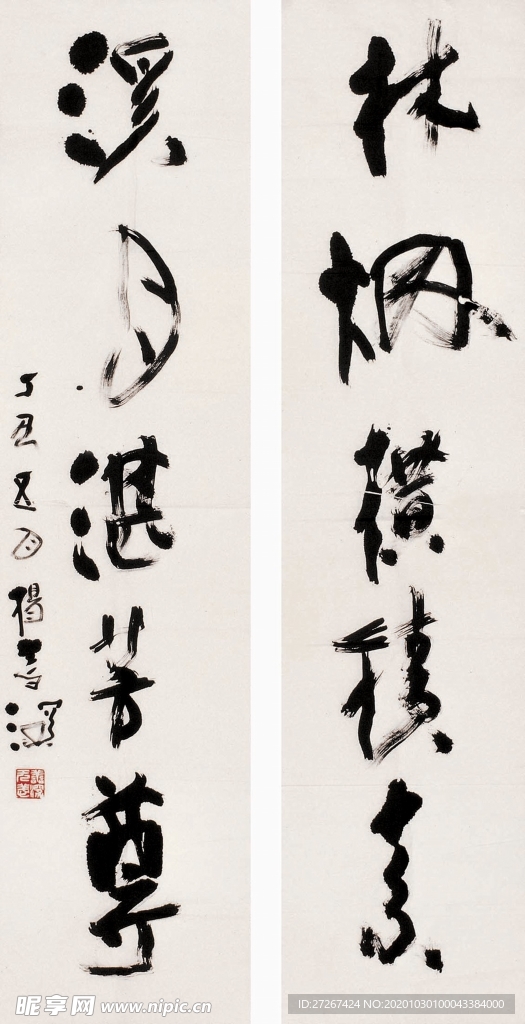 林烟横積素
溪月湛芳尊
丁丑五月楊善深
昵享网 www.nipic.cn
ID:27267424 NO:20201030100043384000